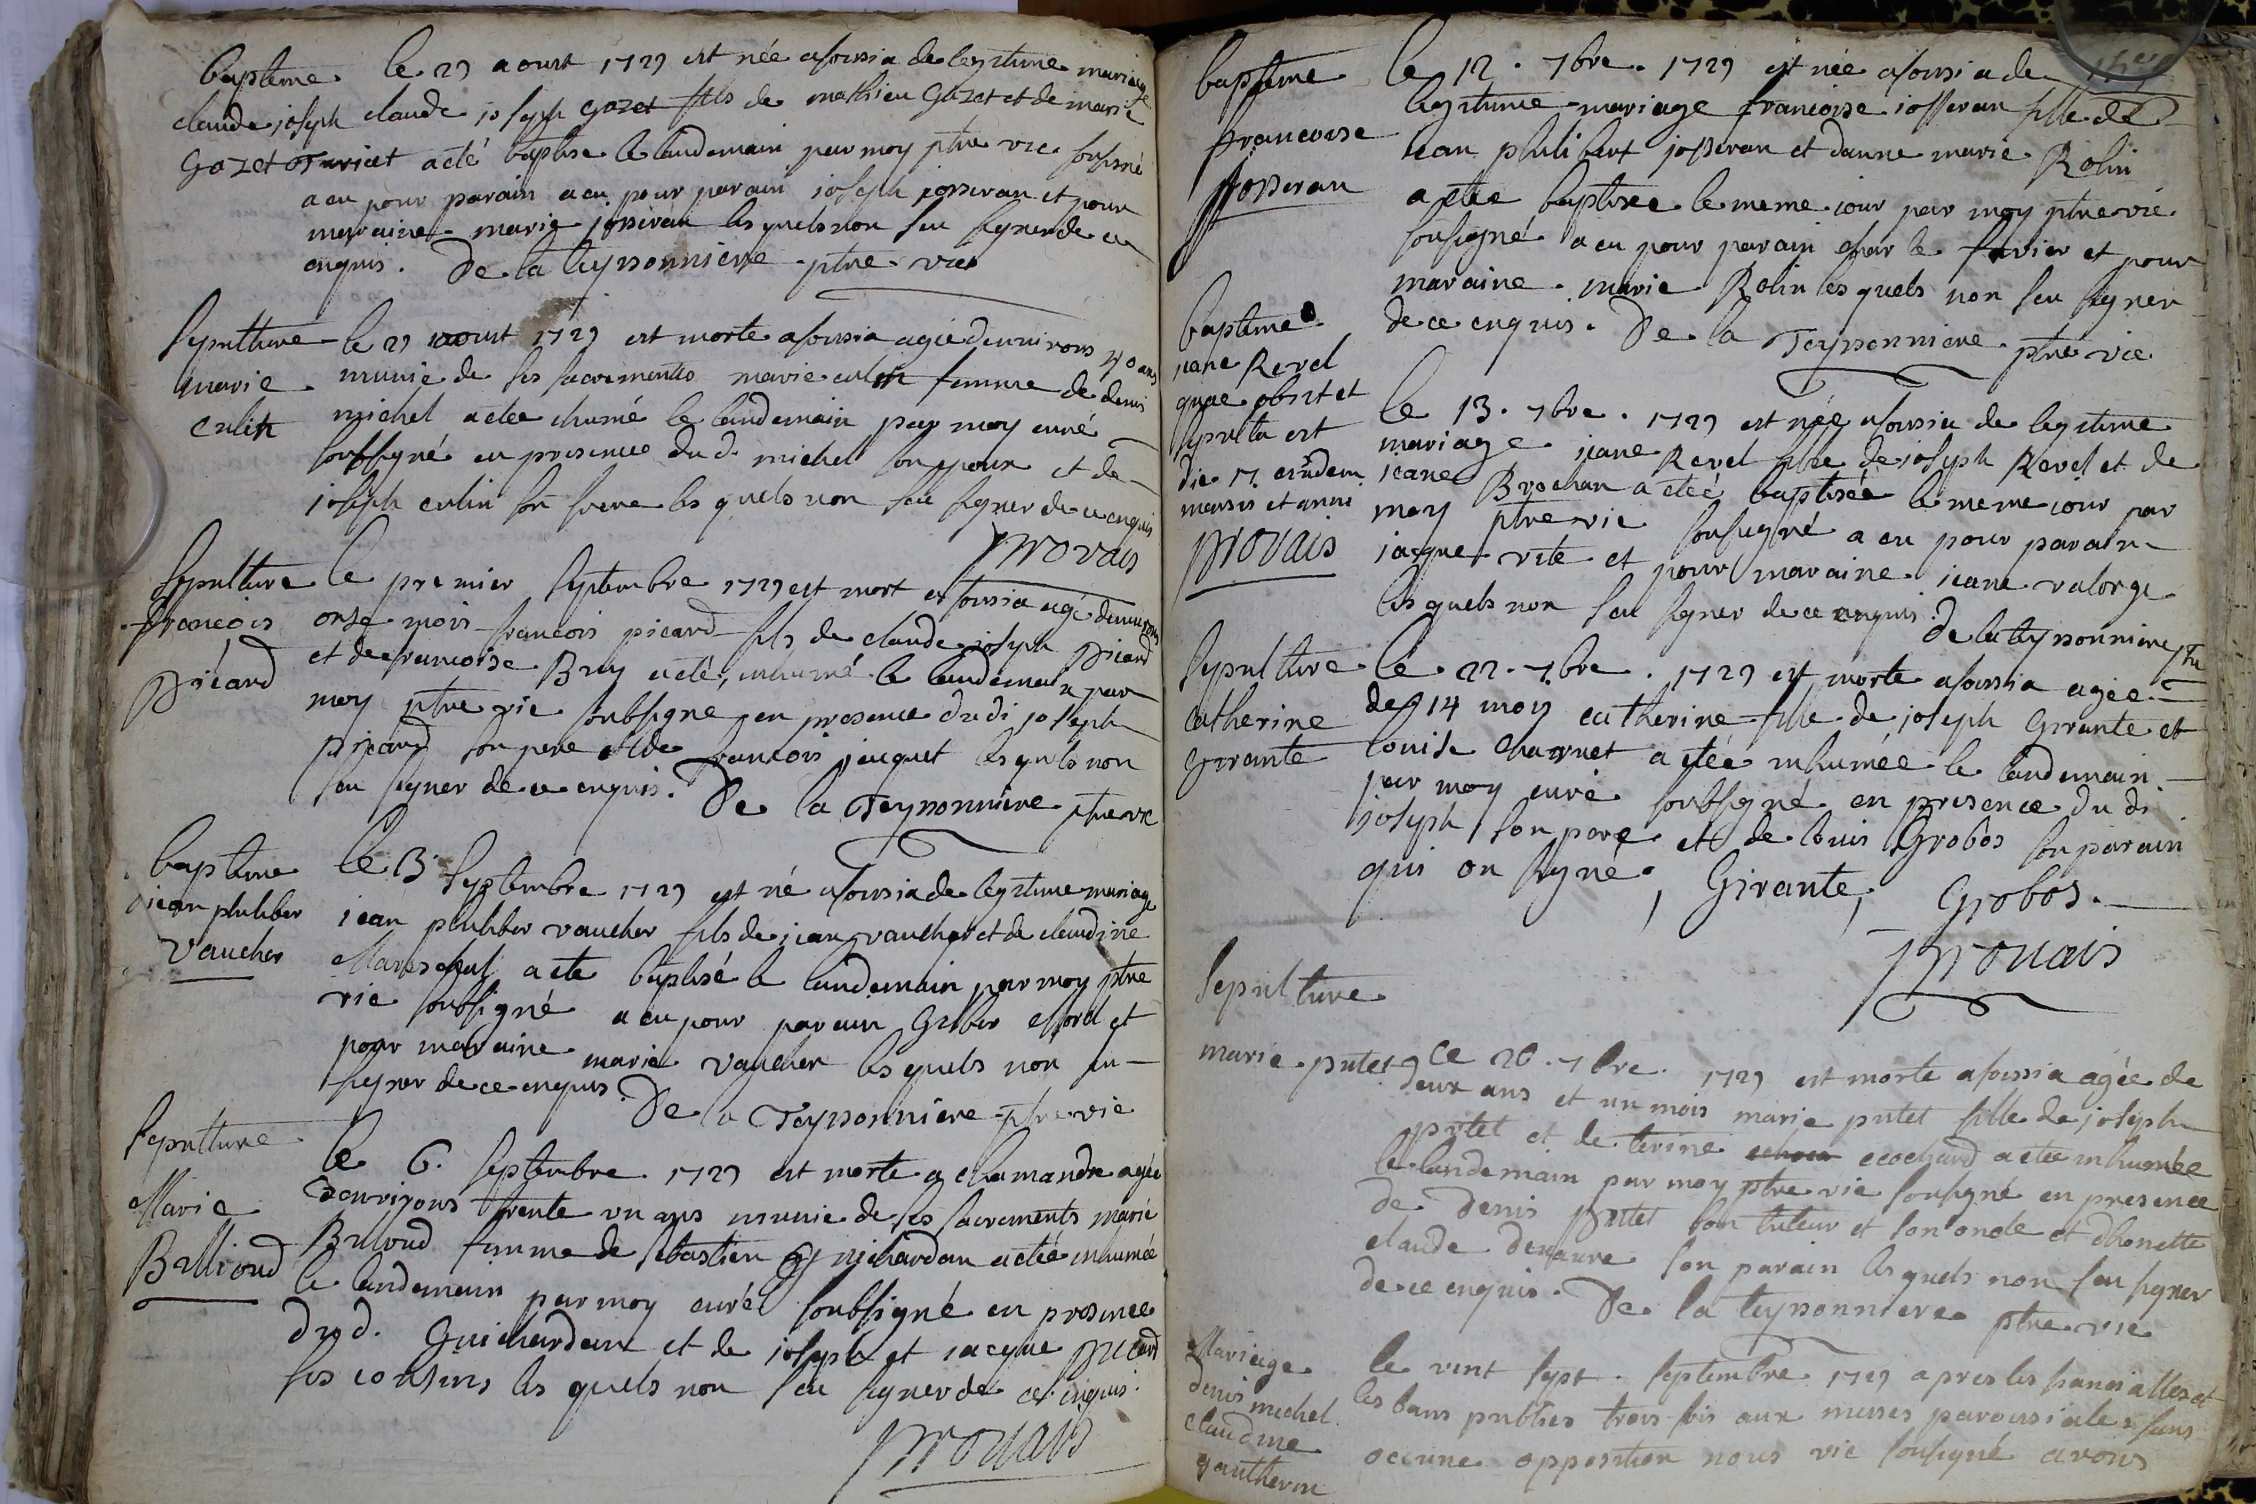 bapteme
claude joseph
Gozet
le 29 aoust 1729 est née a foissia de legitime mariage
claude joseph gozet fils de mathieu Gozet et de marie
Turiet a eté baptise le landemain par moy ptre vic sousiné
a eu pour parain a eu pour parain joseph josseran et pour
maraine marie josseran les quels non seu signer de ce
enquis. De la teyssonniere ptre vic
sepulture
marie
culin
le 29 aoust 1729 est morte a foissia agée denvirons 40 ans
munie de ses sacrements marie culin femme de denis
michel a etee inhumé le landemain par moy curé
soubsigné en presence du d. michel son epoux et de
joseph culin son frere les quels non seu signer de ce enquis
provais
sepulture
francois
picard
le premier septembre 1729 est mort a foissia agé denvirons
onze mois francois picard fils de claude joseph picard
et de francoise Bruy a eté inhumé le landemain par
moy ptre vic soubsigne en presence du di joseph
picard son pere et de francois jacquet les quels non
seu signer de ce enquis. De la Teyssonniere ptre vic
bapteme
jean philiber
vaucher
le 3 septembre 1729 est né a foissia de legitime mariage
jean philiber vaucher fils de jean vaucher et de claudine
Mareschal a ete baptisé le landemain par moy ptre
vic soubsigné a eu pour parain Gilber morel et
pour maraine marie vaucher les quels non seu
signer de ce enquis. De la Teyssonniere ptre vic
sepulture
Marie
Billioud
le 6. septembre 1729 est morte a chamandre agée
denvirons trente un ans munie de ses sacrements marie
Bilioud femme de sebastien Guichardan a etée inhumée
le landemain par moy curé soubsigné en presence
du d. Guichardan et de joseph et jacque picard
ses cousins les quels non seu signer de ce enquis.
provais
bapteme
francoise
josseran
le 12. 7bre. 1729 est née a foissia de
legitime mariage francoise josseran fille de
jean philibert josseran et danne marie Rolin
a etée baptisée le meme jour par moy ptre vic
sousigné a eu pour parain charle favier et pour
maraine marie Rolin les quels non seu signer
de ce enquis. De la Teyssonniere ptre vic
bapteme
jeane Revel
quae obiit et
sepulta est
die 17 eiusdem
mensis et anni
provais
le 13. 7bre. 1729 est née a foissia de legitime
mariage jeane Revel fille de joseph Revel et de
jeane Brochan a etéé baptisée le meme jour par
moy ptre vic sousigné a eu pour parain
jacque vite et pour maraine jeane valorge
les quels non seu signer de ce enquis. De la teyssonniere ptre
sepulture
catherine
girante
le 22. 7bre. 1729 est morte a foissia agée
de 14 mois catherine fille de joseph Girante et
louise Charnet a etée inhumée le landemain
par moy curé soubsigné en presence du di
joseph son pere et de louis Grobos son parain
qui on signé. Girante, Grobos.
provais
sepulture
marie putet
le 26. 7bre. 1729 est morte a foissia agée de
deux ans et un mois marie putet fille de joseph
putet et de terine ecochard a etée inhumée
le landemain par moy ptre vic sousigné en presence
de denis putet son tuteur et son oncle et dhonette
claude denaure son parain les quels non seu signer
de ce enquis. De la teyssonniere ptre vic
Mariage
denis michel
claudine
gautheron
le vint sept. septembre 1729 apres les fiancialles et
les bans publies trois fois aux messes paroissiales sans
occune opposition nous vic sousigné avons